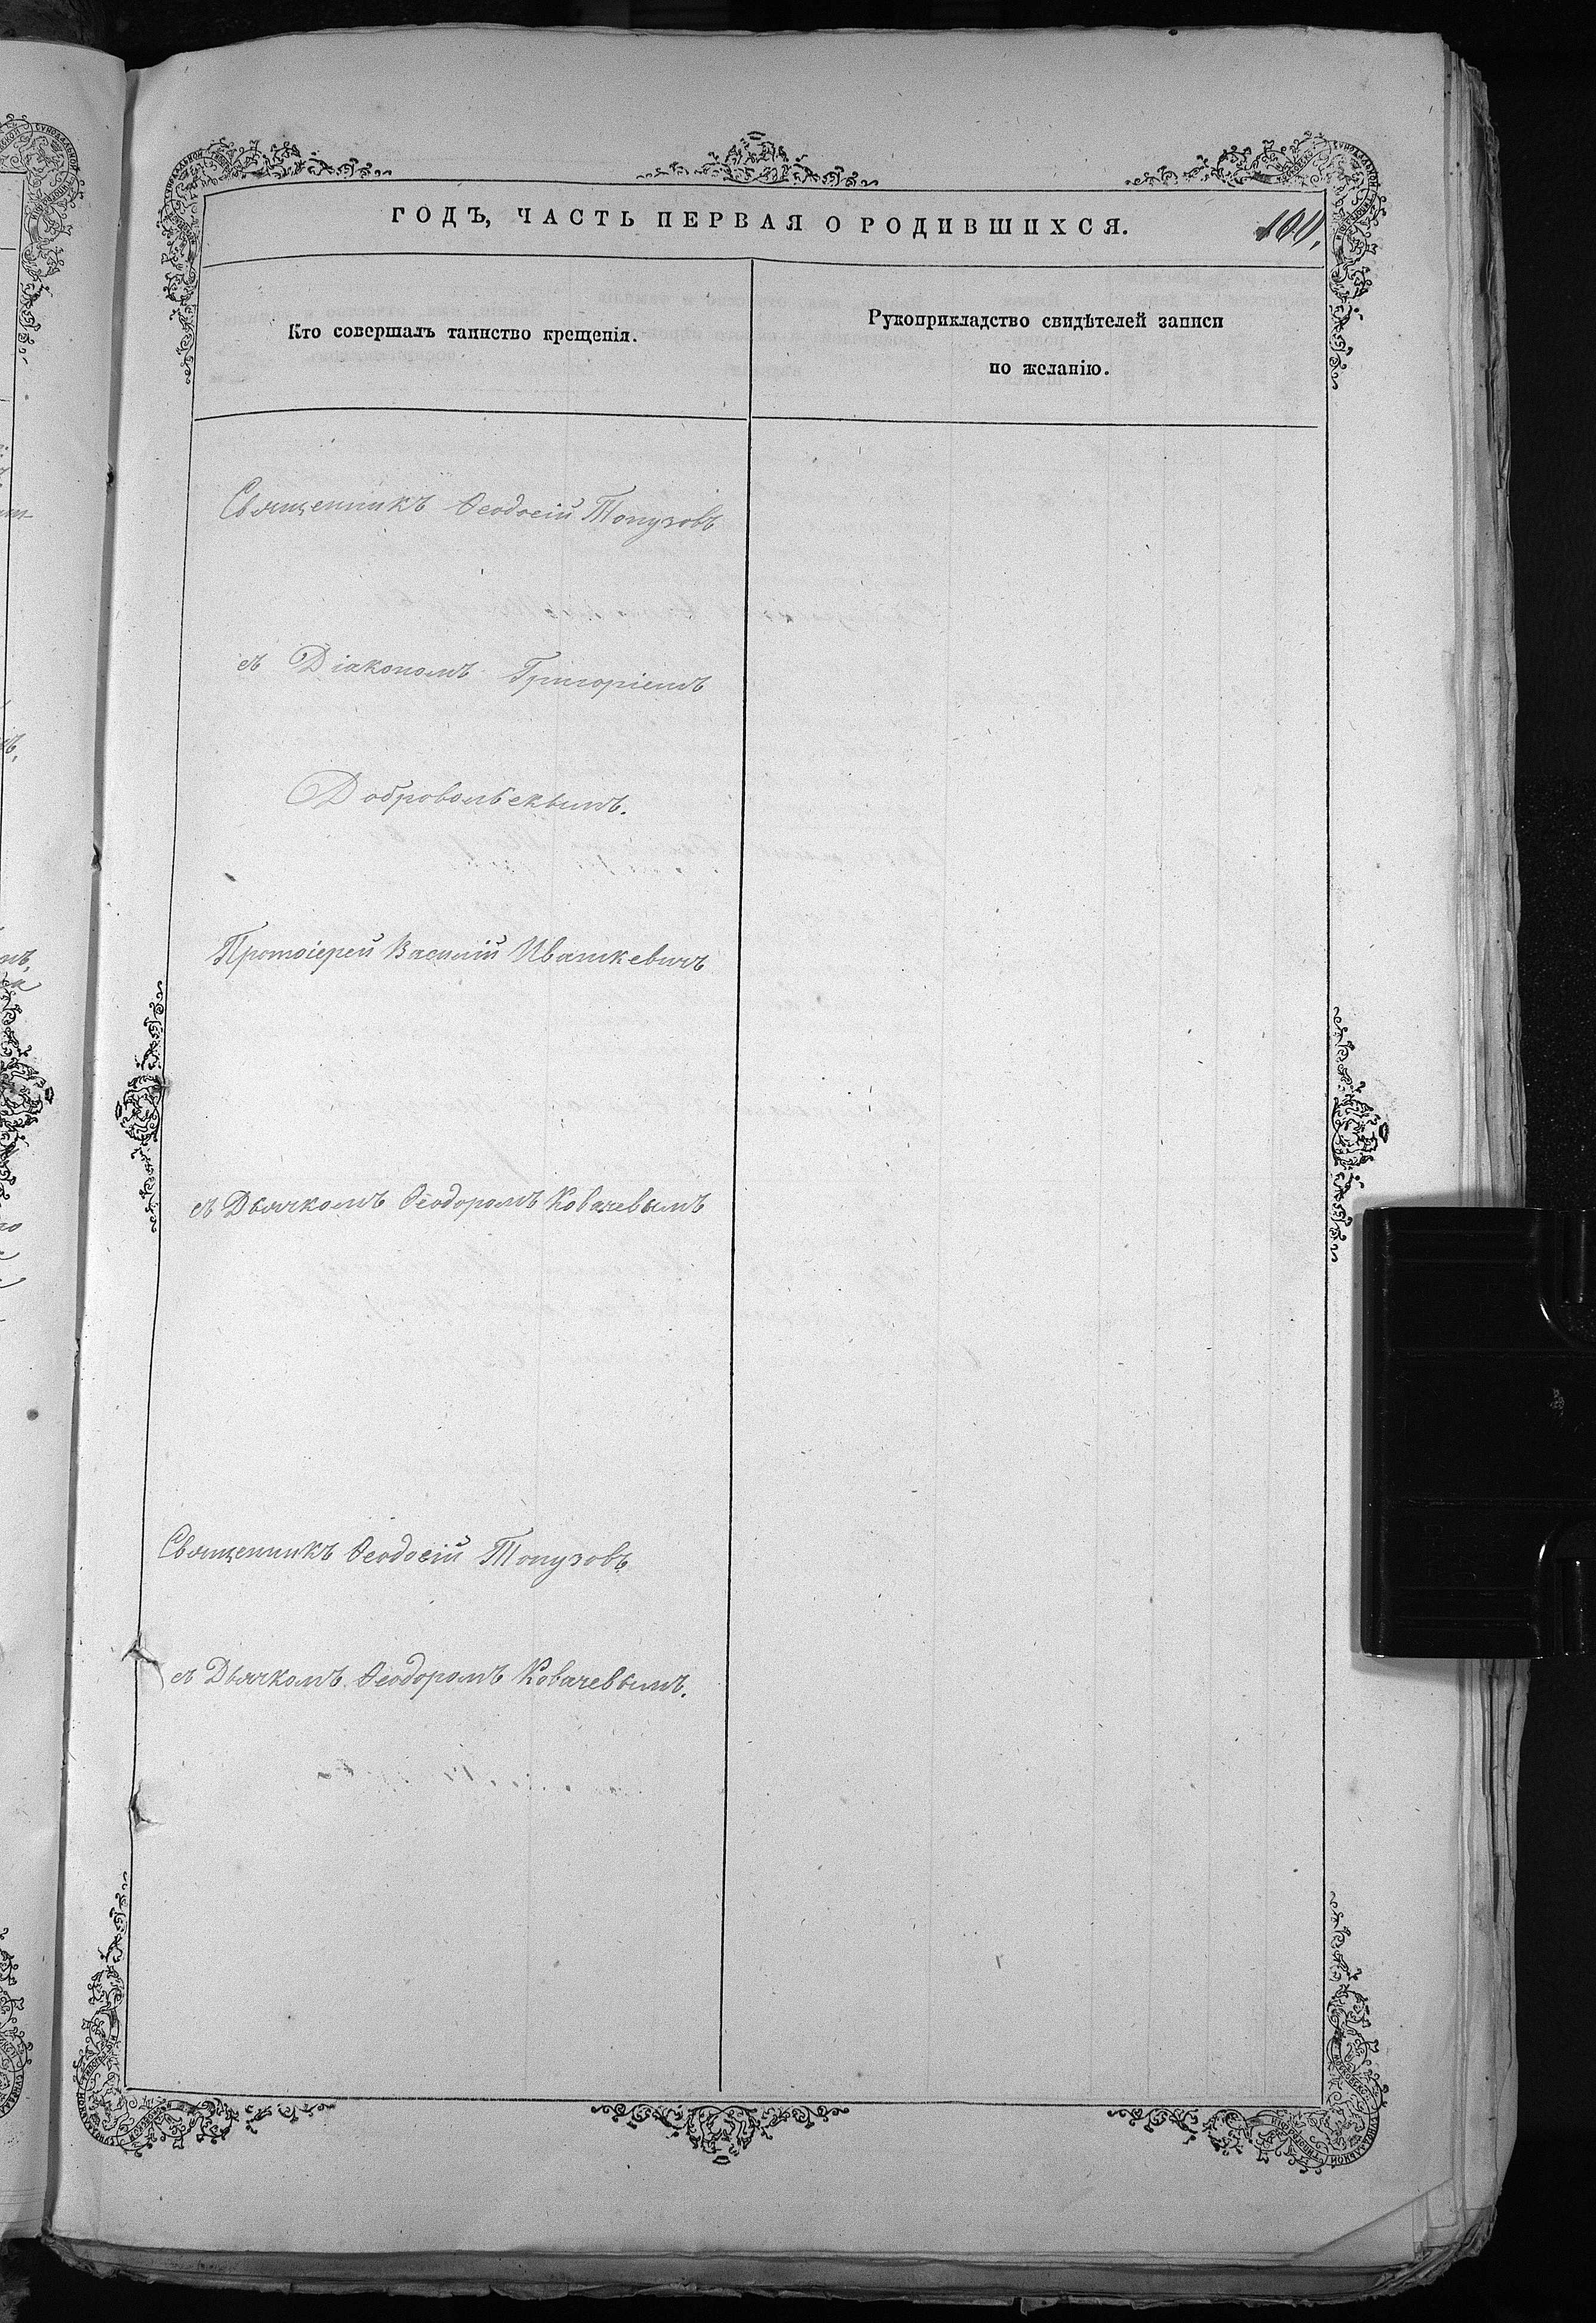 ГОДЪ, ЧАСТЬ ПЕРВАЯ О РОДИВШИХСЯ.
100.
Кто совершалъ таинство крещенія.
Рукоприкладство свидѣтелей записи
по желанію.
Священникъ Ѳеодосій Топузовъ
съ Діакономъ Григоріемъ
Добровольскимъ.
Протоіерей Василій Ивашкевичъ
съ Дьячкомъ Ѳеодоромъ Ковачевымъ
Священникъ Ѳеодосій Топузовъ
съ Дьячкомъ Ѳеодоромъ Ковачевымъ.